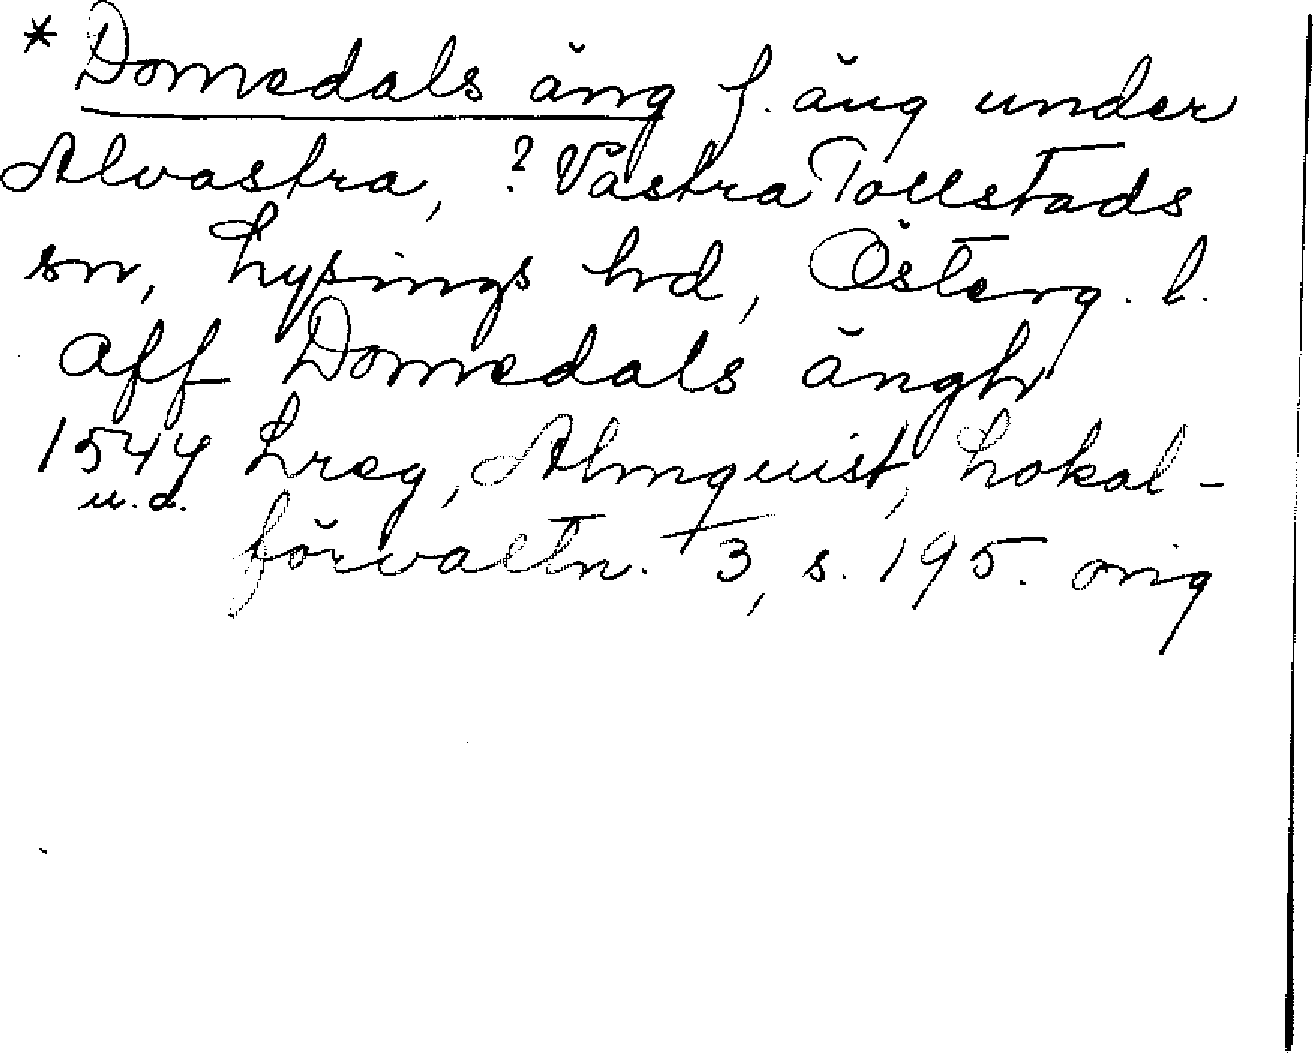 * Domedals äng f. äng under
Alvastra, ? Västra Tollstads
sn, Lysings hd, Österg. l.
aff Domedals ängh
1544 Lreg, Almquist, Lokal-
u.d.
förvaltn. 3, s. 195. orig